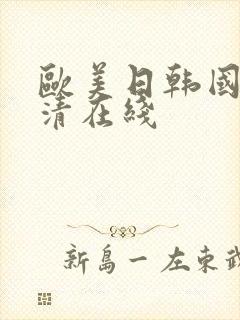 歐美日韩國
清在綫
新島一左東武